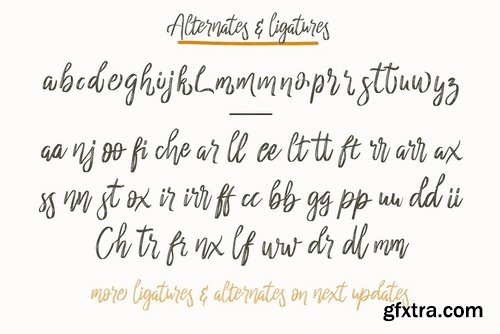 Alternates & ligatures
abcdeghijkLmmmnoprrsttuwyz
aa nj oo fi che ar ll ee lt tt ft rr arr ax
ss nn st ox ir irr ff cc bb gg pp uu dd ii
Ch tr fr nx lf urw dr dl mm
more ligatures & alternates on next updates
gfxtra.com